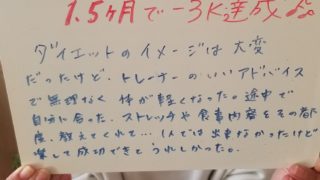 1.5ヶ月で-3K達成
ダイエットのイメージは大変
だったけど、トレーナーのいいアドバイス
で無理なく 体が軽くなった。途中で
自分に合った、ストレッチや食事内容をその都
度、教えてくれて…1人では出来なかったけど
楽して成功できとうれしかった。